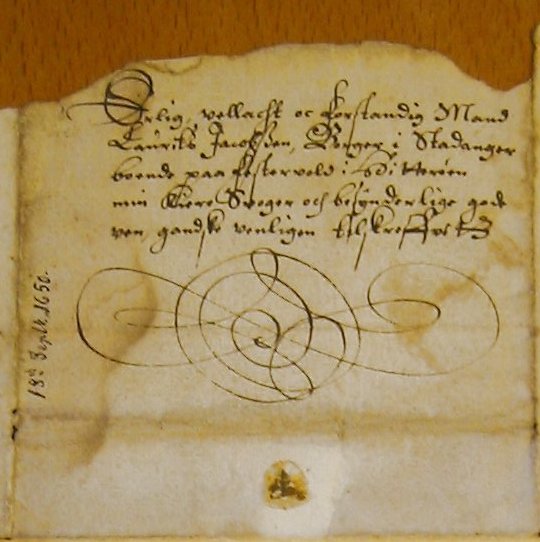 Erlig, vellacht oc forstandig Mand
Laurits Jacobsen, Borger i Stadanger
boende paa Festervold i
min Kiere Svoger och besynderlige gode
ven gandske venligen tilskreffvet
18de Septb. 1650.